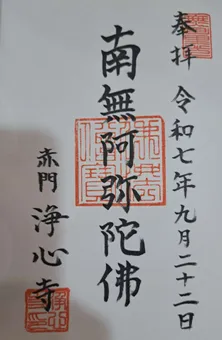 奉拝 令和七年九月二十二日
南無阿弥陀佛
赤門 浄心寺